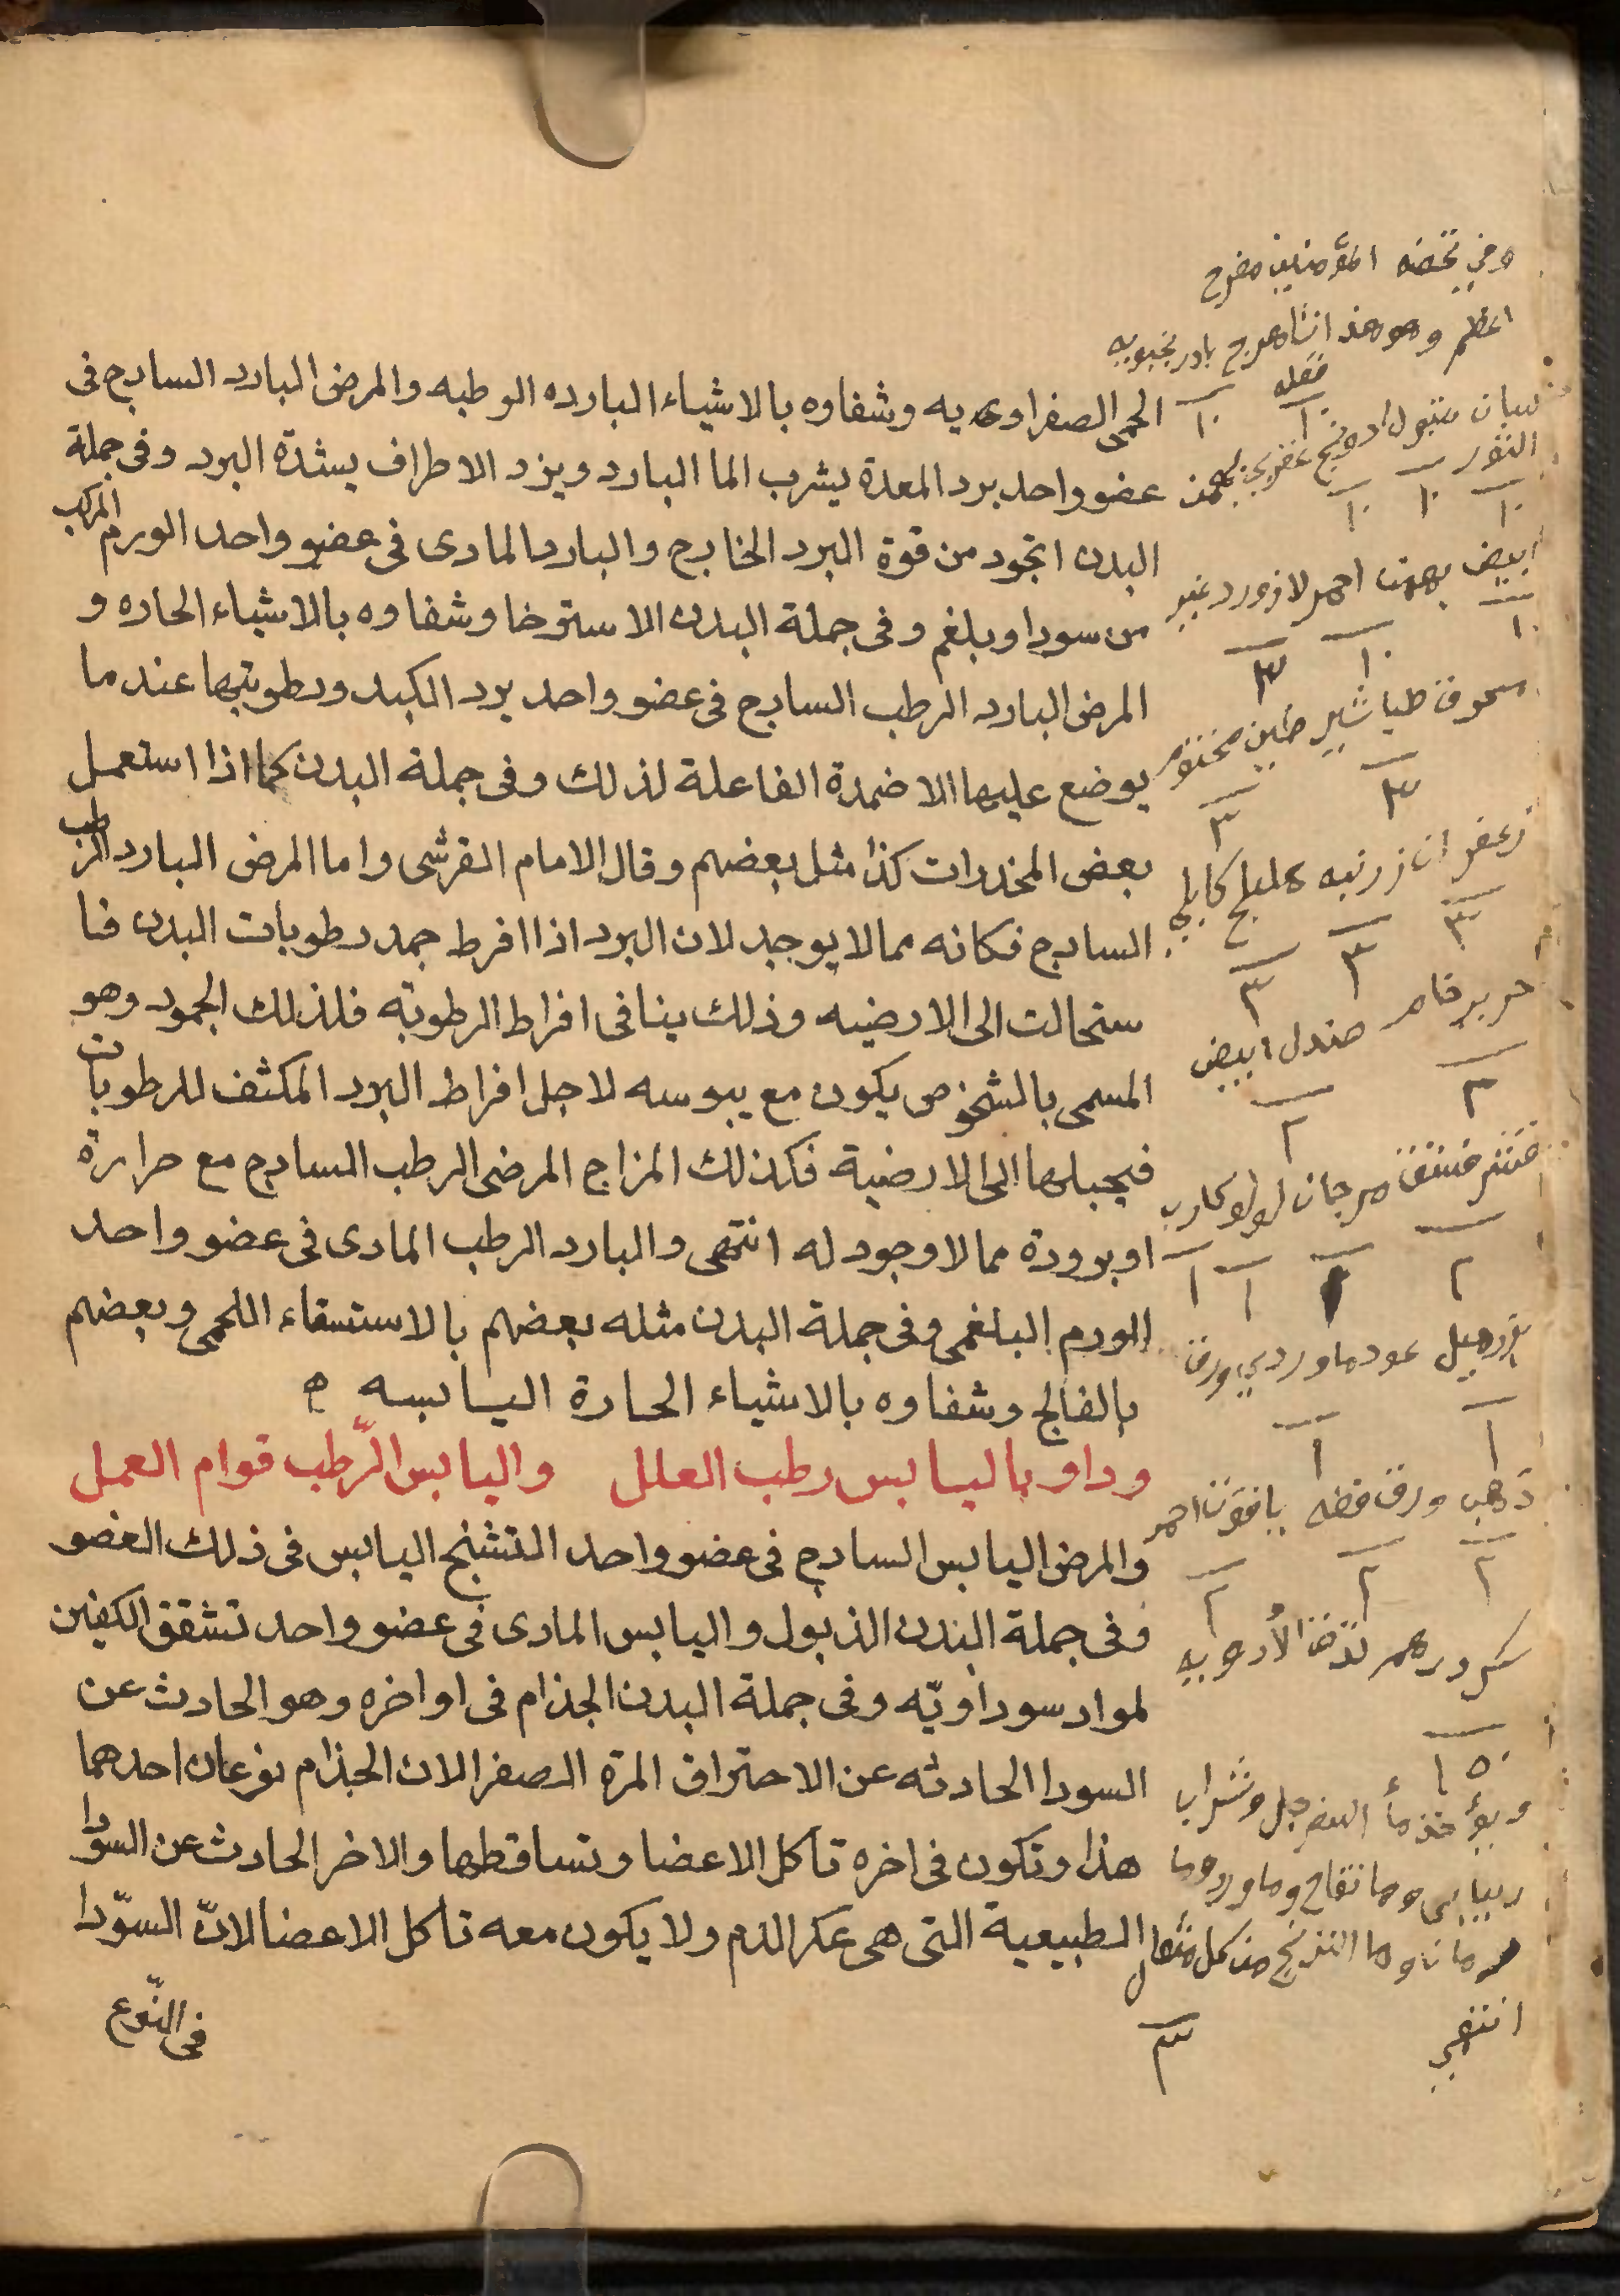 الحمى الصفراويه وشفاوه بالاشياء البارده الرطبه والمرض البارد السادج فى
عضو واحد برد المعدة يشرب الما البارد ويزد الاطراف بشدة البرد وفى جملة
البدن اتجود من قوة البرد الخارج والبارد المادى فى عضو واحد الورم المركب
من سودا وبلغم وفى جملة البدن الاسترخا وشفاوه بالاشياء الحاره و
المرض البارد الرطب السادج فى عضو واحد برد الكبد ورطوبتها عند ما
يوضع عليها الاضمدة الفاعلة لذلك وفى جملة البدن كما اذا استعمل
بعض المخدرات كذا مثل بعضهم وقال الامام القرشى واما المرض البارد الرطب
السادج فكانه مما لا يوجد لان البرد اذا افرط جمد رطوبات البدن فا
ستحالت الى الارضيه وذلك ينافى افراط الرطوبة فلذلك الجمود وهو
المسمى بالشخوص يكون مع يبوسه لاجل افراط البرد المكثف للرطوبات
فيحيلها الى الارضية فكذلك المزاج المرضى الرطب السادج مع حرارة
او برودة مما لا وجود له انتهى والبارد الرطب المادى فى عضو واحد
الورم البلغمى وفى جملة البدن مثله بعضهم بالاستسقاء اللحمى وبعضهم
بالفالج وشفاوه بالاشياء الحارة اليابسه
وداو باليابس رطب العلل واليابس الرّطب قوام العمل
والمرض اليابس السادج فى عضو واحد التشنج اليابس فى ذلك العضو
وفى جملة البدن الذبول واليابس المادى فى عضو واحد تشقق الكفين
لمواد سوداويّه وفى جملة البدن الجذام فى اواخره وهو الحادث عن
السودا الحادثه عن الاحتراق المرة الصفرا لان الجذام نوعان احدهما
هذا وتكون فى اخره تاكل الاعضا وتساقطها والاخر الحادث عن السودا
الطبيعية التى هى عكر الدم ولا يكون معه تاكل الاعضا لانّ السوّدا
فى النّوع
وفي تحفه المؤمنين مفرح
اعظم وهو هذا شاهترج بادرنجبويه
١٠ ١٠
لسان الثور درونج عقربي بهمن
١٠ ١٠ ١٠
ابيض بهمن احمر لازورد عنبر
١٠ ١٠ ٣
طباشير طين مختوم
٣ ٣
زعفران زرنبه هليلج كابلي
٣ ٣ ٣
حرير خام صندل ابيض
٣ ٢
قشر فستق مرجان لولو كارب
٢ ١ ١ ١
عود ماوردي ورق
١ ١
ذهب ورق فضه ياقوت احمر
٢ ٢ ٢
الأدويه
١٥٠
ويؤخذ مأ السفرجل وشراب
وما تفاح وماورد وما
من كل مثقال
انتهى
٣